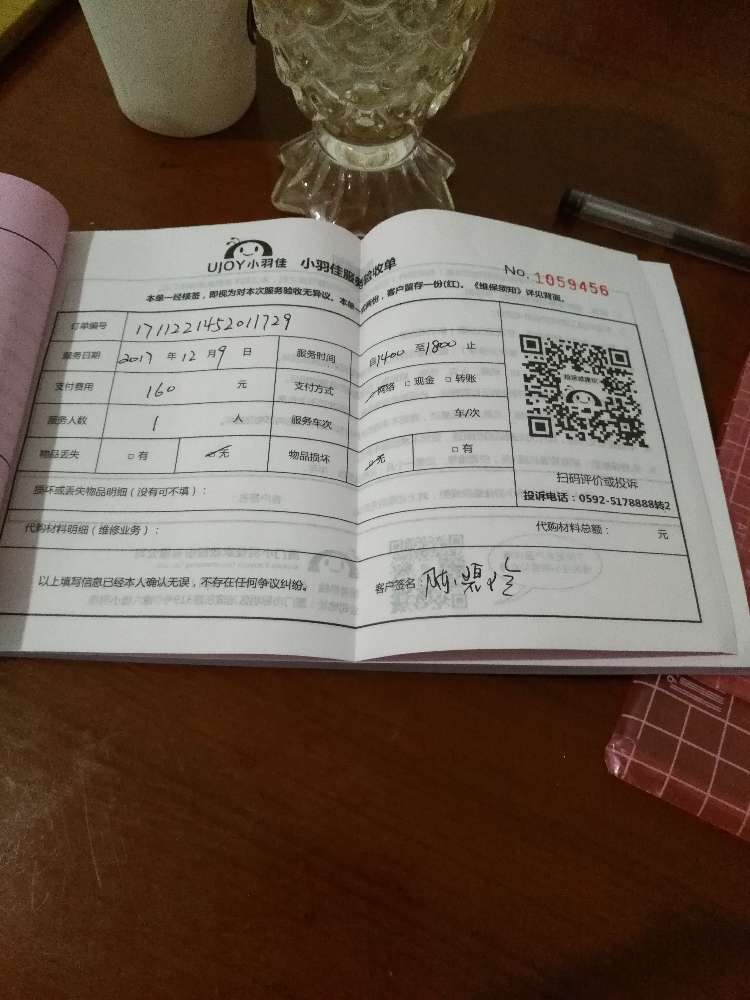 UJOY小羽佳 小羽佳服务验收单
No. 1059456
本单一经核签，即视为对本次服务验收无异议。本单 份，客户留存一份(红)。《维保须知》详见背面。
订单编号 1711221452011729
服务日期 2017 年 12 月 9 日 服务时间 自1400 至1800 止
支付费用 160 元 支付方式 网络 □ 现金 □ 转账
服务人数 1 人 服务车次 车/次
物品丢失 □ 有 □ 无 物品损坏 □ 无 □ 有
扫码评价或投诉
投诉电话：0592-5178888转2
损坏或丢失物品明细（没有可不填）：
代购材料明细（维修业务）： 代购材料总额： 元
以上填写信息已经本人确认无误，不存在任何争议纠纷。 客户签名：